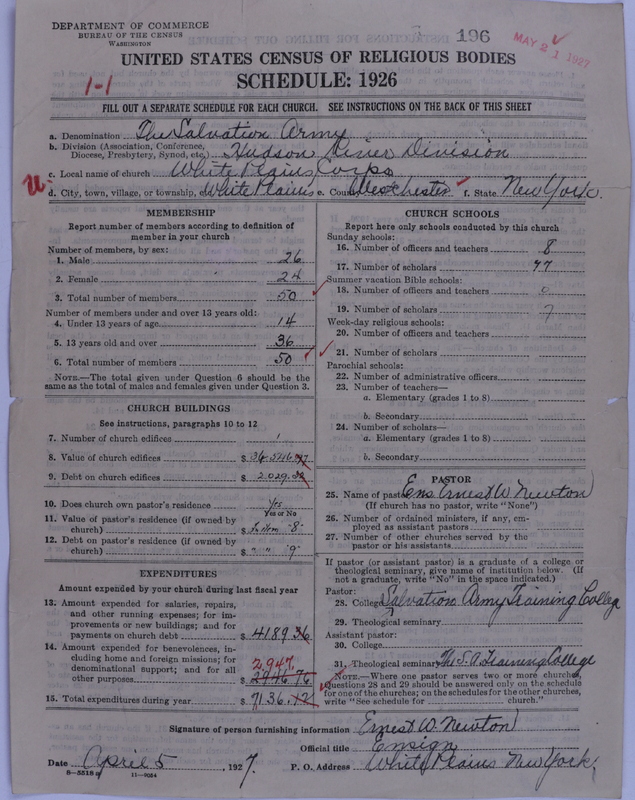 DEPARTMENT OF COMMERCE
BUREAU OF THE CENSUS
WASHINGTON
196
MAY 21 1927
UNITED STATES CENSUS OF RELIGIOUS BODIES
SCHEDULE: 1926
1-1
FILL OUT A SEPARATE SCHEDULE FOR EACH CHURCH. SEE INSTRUCTIONS ON THE BACK OF THIS SHEET
a. Denomination The Salvation Army
b. Division (Association, Conference, Diocese, Presbytery, Synod, etc.) Hudson River Division
c. Local name of church White Plains Corps
d. City, town, village, or township, etc. White Plains e. County Westchester f. State New York.
MEMBERSHIP
Report number of members according to definition of
member in your church
Number of members, by sex:
1. Male 26
2. Female 24
3. Total number of members 50
Number of members under and over 13 years old:
4. Under 13 years of age 14
5. 13 years old and over 36
6. Total number of members 50
NOTE.—The total given under Question 6 should be the
same as the total of males and females given under Question 3.
CHURCH BUILDINGS
See instructions, paragraphs 10 to 12
7. Number of church edifices 1
8. Value of church edifices $
9. Debt on church edifices $ 2029.
10. Does church own pastor's residence Yes
Yes or No
11. Value of pastor's residence (if owned by
church) $ In Item "8"
12. Debt on pastor's residence (if owned by
church) $ " " "9"
EXPENDITURES
Amount expended by your church during last fiscal year
13. Amount expended for salaries, repairs,
and other running expenses; for im-
provements or new buildings; and for
payments on church debt $ 4189.36
14. Amount expended for benevolences, in-
cluding home and foreign missions; for
denominational support; and for all
other purposes $ 2946.76
2947.
15. Total expenditures during year $ 7136.12
CHURCH SCHOOLS
Report here only schools conducted by this church
Sunday schools:
16. Number of officers and teachers 8
17. Number of scholars 77
Summer vacation Bible schools:
18. Number of officers and teachers 0
19. Number of scholars
Week-day religious schools:
20. Number of officers and teachers
21. Number of scholars
Parochial schools:
22. Number of administrative officers
23. Number of teachers—
a. Elementary (grades 1 to 8)
b. Secondary
24. Number of scholars—
a. Elementary (grades 1 to 8)
b. Secondary
PASTOR
25. Name of pastor Ens. Ernest W. Newton
(If church has no pastor, write "None")
26. Number of ordained ministers, if any, em-
ployed as assistant pastors
27. Number of other churches served by the
pastor or his assistants
If pastor (or assistant pastor) is a graduate of a college or
theological seminary, give name of institution below. (If
not a graduate, write "No" in the space indicated.)
Pastor:
28. College Salvation Army Training College
29. Theological seminary
Assistant pastor:
30. College
31. Theological seminary The S. A. Training College
NOTE.—Where one pastor serves two or more churches,
Questions 28 and 29 should be answered only on the schedule
for one of the churches; on the schedules for the other churches,
write "See schedule for church."
Signature of person furnishing information Ernest W. Newton
Official title Ensign
Date April 5, 1927. P. O. Address White Plains New York.
8—5518 11—9054